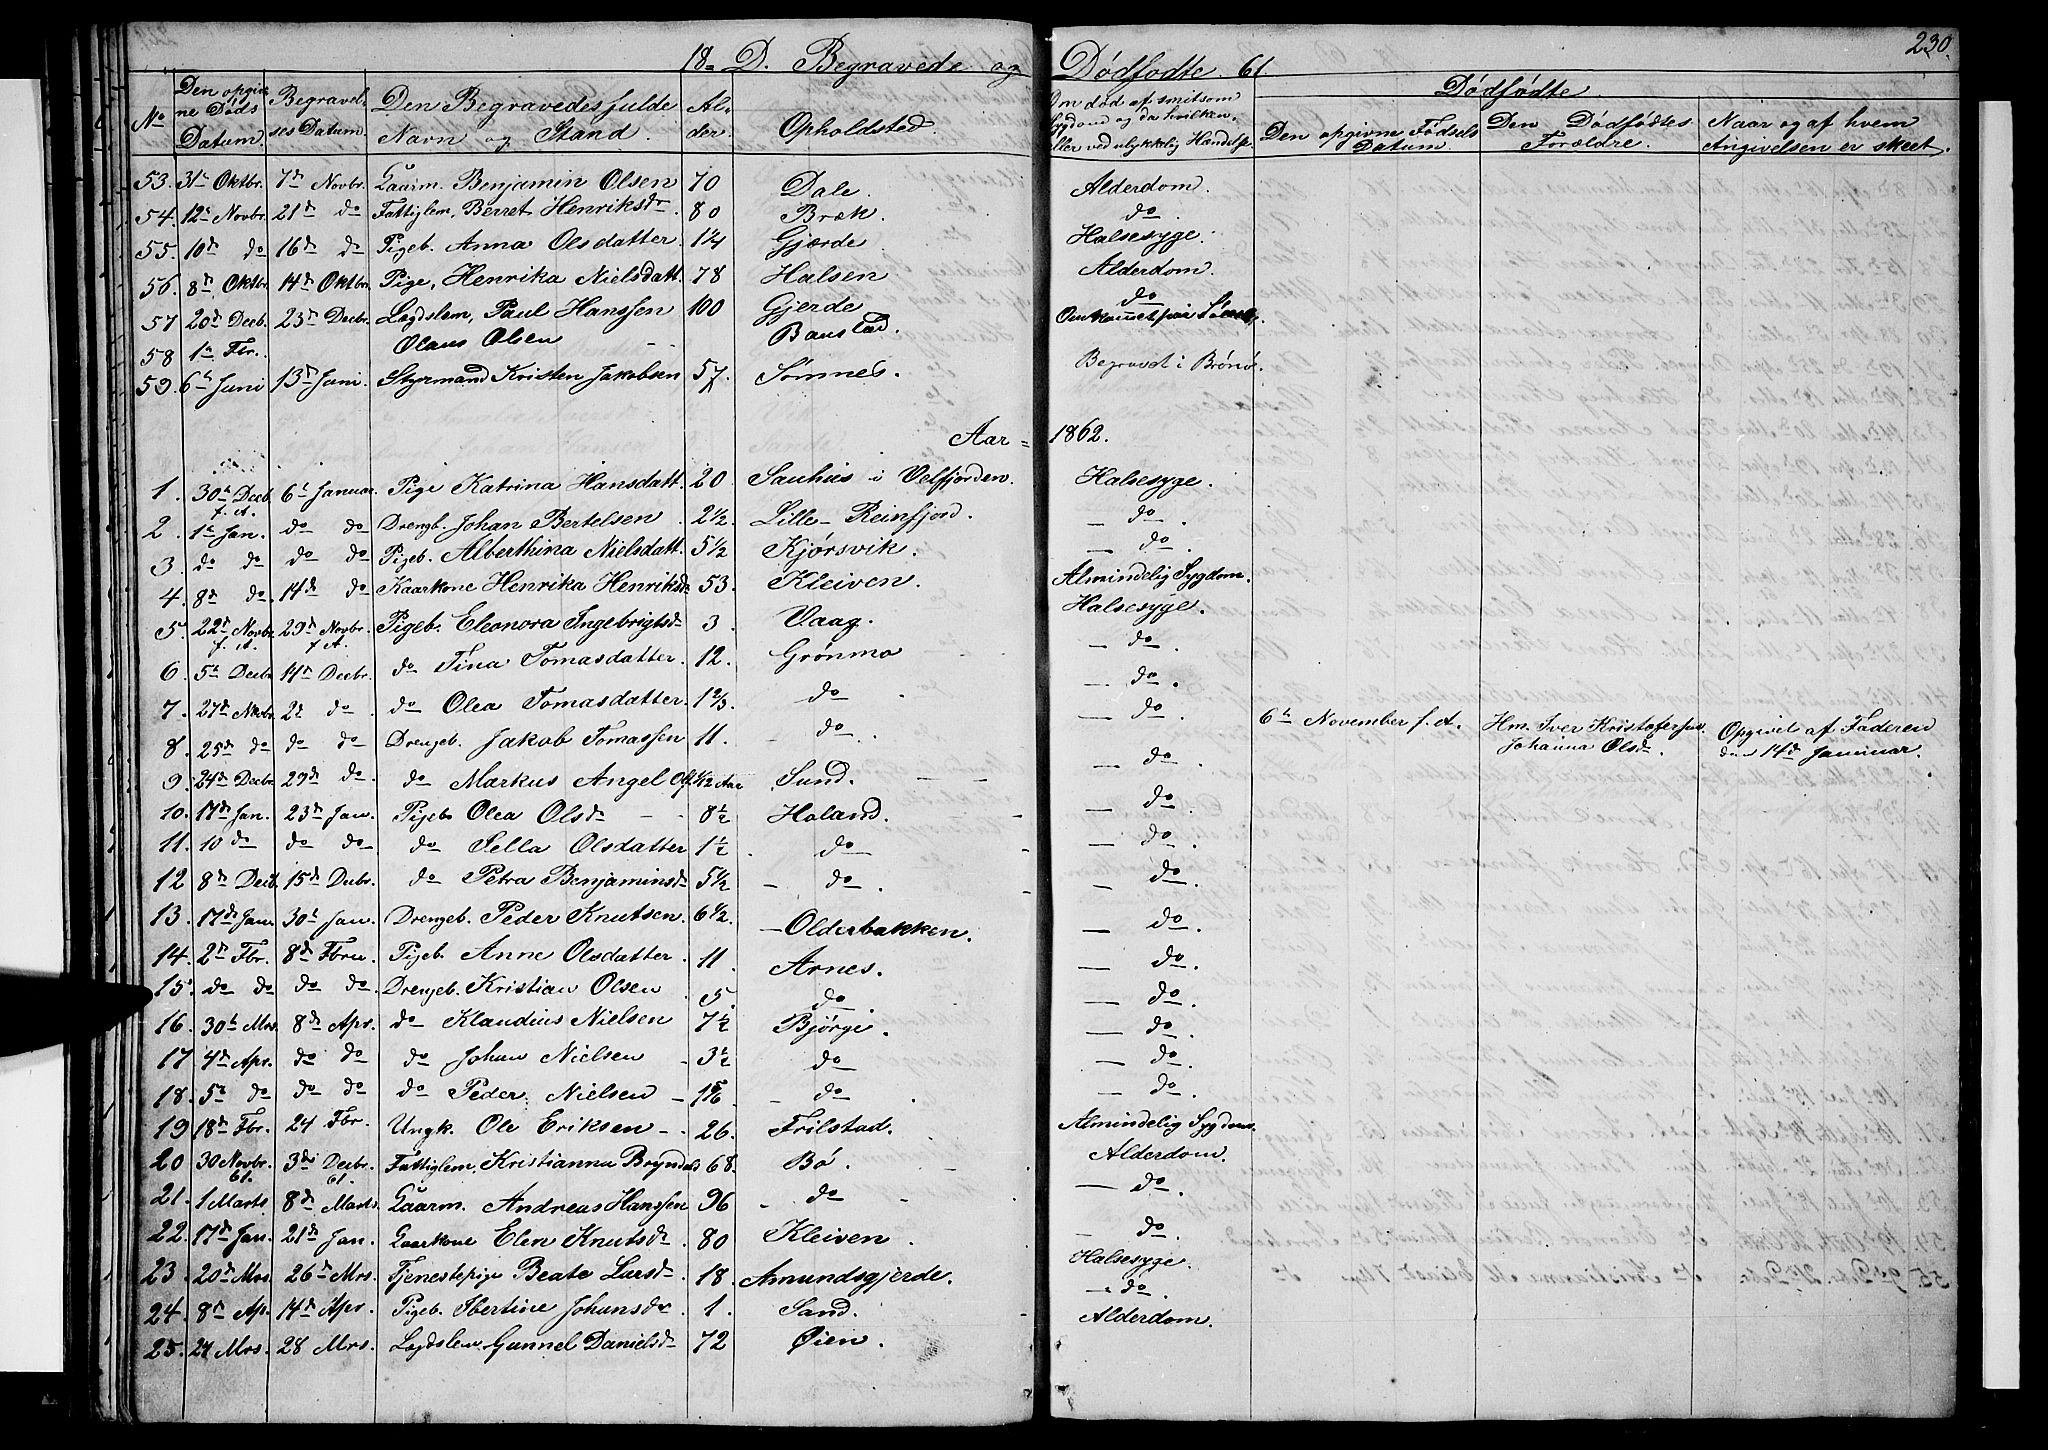 230.
18 = D. Begravede og Dödfödte. 61.
No
Den opgivne Döds Datum.
Begravelses Datum.
Den Begravedes fulde Navn og Stand.
Alder.
Opholdsted.
Om död af smitsom Sygdom og da hvilken, eller ved ulykkelig Hændelse.
Dödfödte.
Den opgivne Födsels Datum.
Den Dödfödtes Forældre.
Naar og af hvem Angivelsen er skeet.
53. 31te Oktbr. 7de Novbr. Gaarm. Benjamin Olsen 70 Dale. Alderdom.
54. 12te Novbr. 21de do Fattiglem, Berret Henriksdr. 80 Bræk. do.
55. 10de do 16de do Pigeb. Anna Olsdatter 1 1/4 Gjærde Halsesyge.
56. 8de Oktbr. 14de Oktbr. Pige, Henrika Nielsdatt. 78 Halsen Alderdom.
57 20de Decb. 23de Decbr. Legdslem, Paul Hanssen 100 Gjerde do
58 1te Fbr. Olaus Olsen Baustad. Omkommet paa Söen.
59. 6te Juni 13de Juni. Styrmand Kristen Jakobsen 57. Sömnes. Begravet i Brönö.
Aar = 1862.
1. 30te Decb. f. A. 6te Januar. Pige Katrina Hansdatt. 20 Sauhus i Velfjorden. Halsesyge.
2. 1te Jan. do do Drengb. Johan Bertelsen. 2 1/2. Lille-Reinfjord. — do.
3. do do do do Pigeb. Alberthina Nielsdatt. 5 1/2 Kjörsvik. — do.
4. 8de do. 14de do Kaarkone Henrika Henriksdr 53. Kleiven. Almindelig Sygdom.
5. 22de Novbr. f. A. 29de Novbr. f. A. Pigeb. Eleonora Ingebrigtsdr 3. Vaag. Halsesyge.
6. 5te Decbr. 14de Decbr. do Tina Tomasdatter. 12. Grönmo — do.
7. 27de Novbr. 2de do. do Olea Tomasdatter. 1 2/3. do — do.
8. 25de do do do Drengeb. Jakob Tomassen 11. do. — do. 6te November f. A. Hm. Iver Kristofersen Johanna Olsdr. Opgivet af Faderen den 14de Januar.
9. 24de Decbr. 29de do. do Markus Angel Ols. 1/12 Aar Sund. — do.
10. 17de Jan. 23de Jan. Pigeb. Olea Olsdr 8 1/2 Holand. — do.
11. 10 do do do do Pella Olsdatter 1 1/2. do — do.
12 8de Decb. 15de Decbr. do Petra Benjaminsdr 5 1/2 do. — do.
13. 17de Jan. 30te Jan. Drengeb. Peder Knutsen. 6 1/2. Olderbakken. — do.
14. 2den Fbr. 8de Fbru. Pigeb. Anne Olsdatter. 11. Arnes. — do.
15. do do do do. Drengeb. Kristian Olsen 5. do. — do.
16. 30te Mrs. 8de Apr. do Klaudius Nielsen 7 1/2 Bjørge. — do.
17 4de Apr. do do do Johan Nielsen 3 1/2 do — do.
18. 5te do do do do Peder Nielsen 1 5/6 do. — do.
19 18de Fbr. 24 Fbr. Ungk. Ole Eriksen 26. Frilstad. Almindelig Sygdom.
20 30 Novbr. 61. 3die Decbr. 61. Fattiglem, Kristianna 68. Bö. Alderdom.
21. 1 Marts 8de Marts. Gaarm. Andreas Hanssen 96 do — do.
22. 17de Jan. 21de Jan. Gaarkone Elen Knutsdr 80 Kleiven. — do.
23. 20de Mrs. 26de Mrs. Tjenestepige Beate Larsdr 18. Amundsgjerde. Halsesyge.
24. 8de Ap. 14de Apr. Pigeb. Ibertine Johansdr. 1. Sand. — do.
25. 24 Mrs. 28 Mrs. Legdslem. Gunnel Danielsdr 72 Öien. Alderdom.